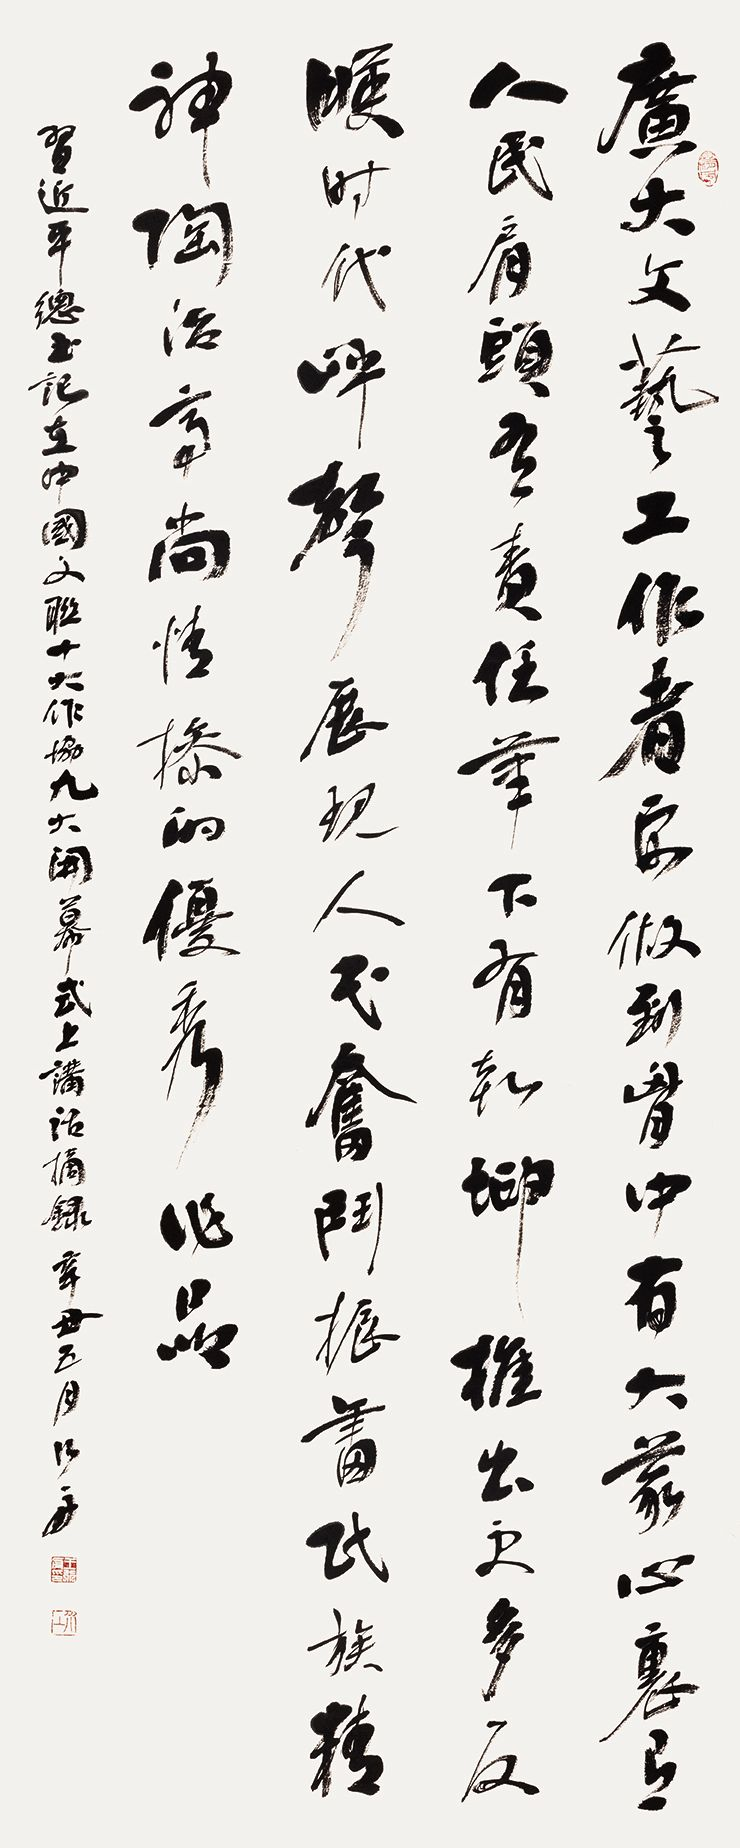 廣大文藝工作者要做到胷中有大義心裏有
人民肩頭有責任筆下有乾坤推出更多反
映时代呼聲展現人民奮鬥振奮民族精
神陶冶高尚情操的優秀作品
習近平總书記在中國文聯十大作協九大開幕式上講話摘録辛丑五月